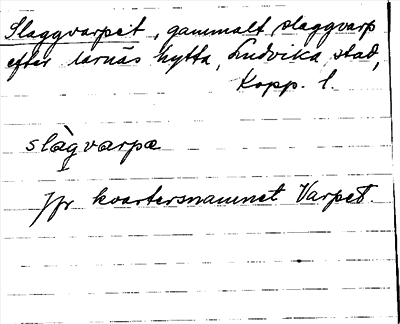 Slaggvarpet, gammalt slaggvarp
efter larnäs hytta, Ludvika stad,
Kopp. l.
slàgvarpæ
Jfr kvartersnamnet Varpet.